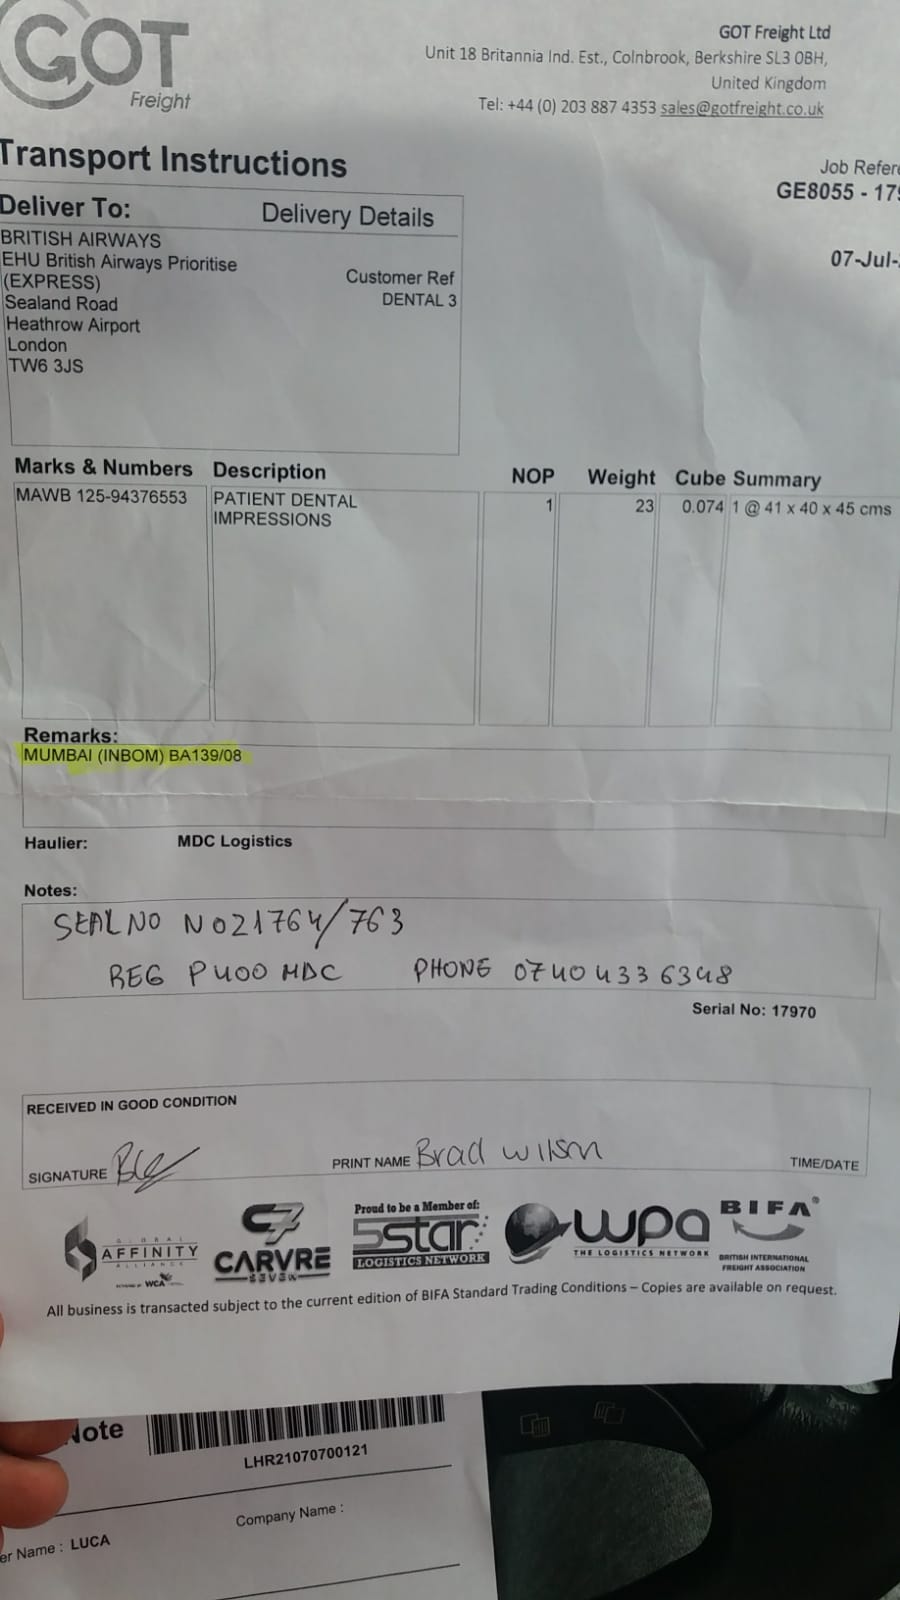 GOT
Freight
GOT Freight Ltd
Unit 18 Britannia Ind. Est., Colnbrook, Berkshire SL3 0BH,
United Kingdom
Tel: +44 (0) 203 887 4353 sales@gotfreight.co.uk
Transport Instructions
Job Refere
GE8055 - 179
07-Jul-
Deliver To:
Delivery Details
BRITISH AIRWAYS
EHU British Airways Prioritise
(EXPRESS)
Sealand Road
Heathrow Airport
London
TW6 3JS
Customer Ref
DENTAL 3
Marks & Numbers Description NOP Weight Cube Summary
MAWB 125-94376553 PATIENT DENTAL 1 23 0.074 1 @ 41 x 40 x 45 cms
IMPRESSIONS
Remarks:
MUMBAI (INBOM) BA139/08
Haulier: MDC Logistics
Notes:
SEAL NO N021764/763
REG P400 MDC PHONE 07404336348
Serial No: 17970
RECEIVED IN GOOD CONDITION
SIGNATURE PRINT NAME Brad Wilson TIME/DATE
GLOBAL
AFFINITY
ALLIANCE
WCA
CARVRE
SEVEN
Proud to be a Member of:
5star
LOGISTICS NETWORK
wpa
THE LOGISTICS NETWORK
BIFA®
BRITISH INTERNATIONAL
FREIGHT ASSOCIATION
All business is transacted subject to the current edition of BIFA Standard Trading Conditions – Copies are available on request.
Note
LHR21070700121
Company Name :
er Name : LUCA